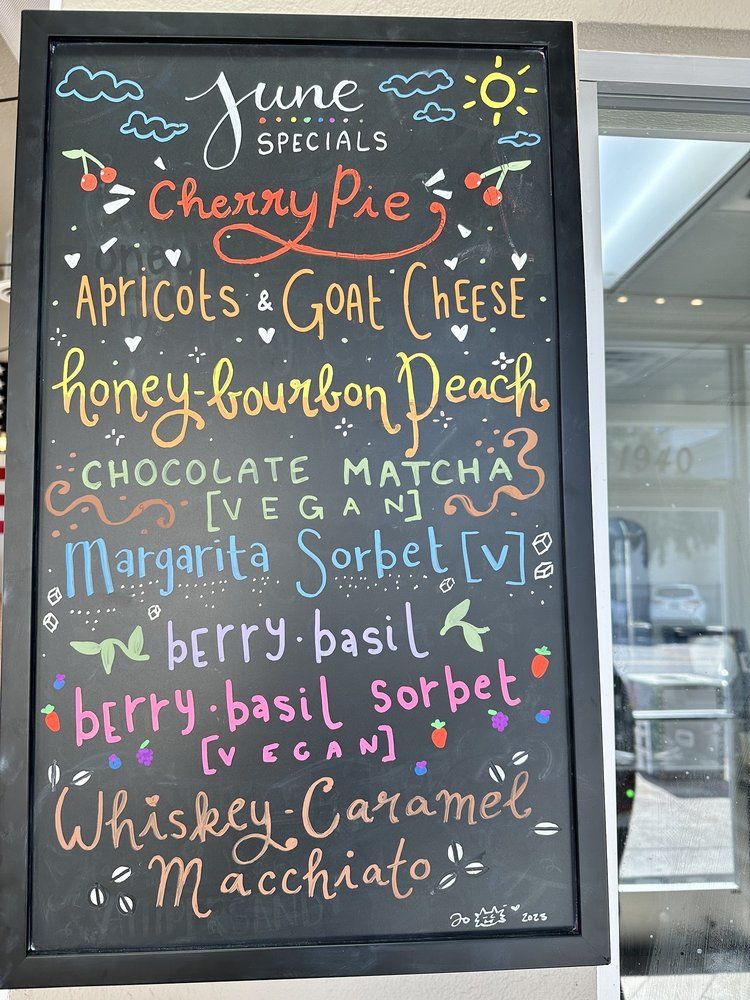 June
SPECIALS
Cherry Pie
Apricots & Goat Cheese
honey-bourbon Peach
CHOCOLATE MATCHA
[VEGAN]
Margarita Sorbet [V]
berry·basil
berry·basil sorbet
[VEGAN]
Whiskey-Caramel
Macchiato
Jo 2023
1940